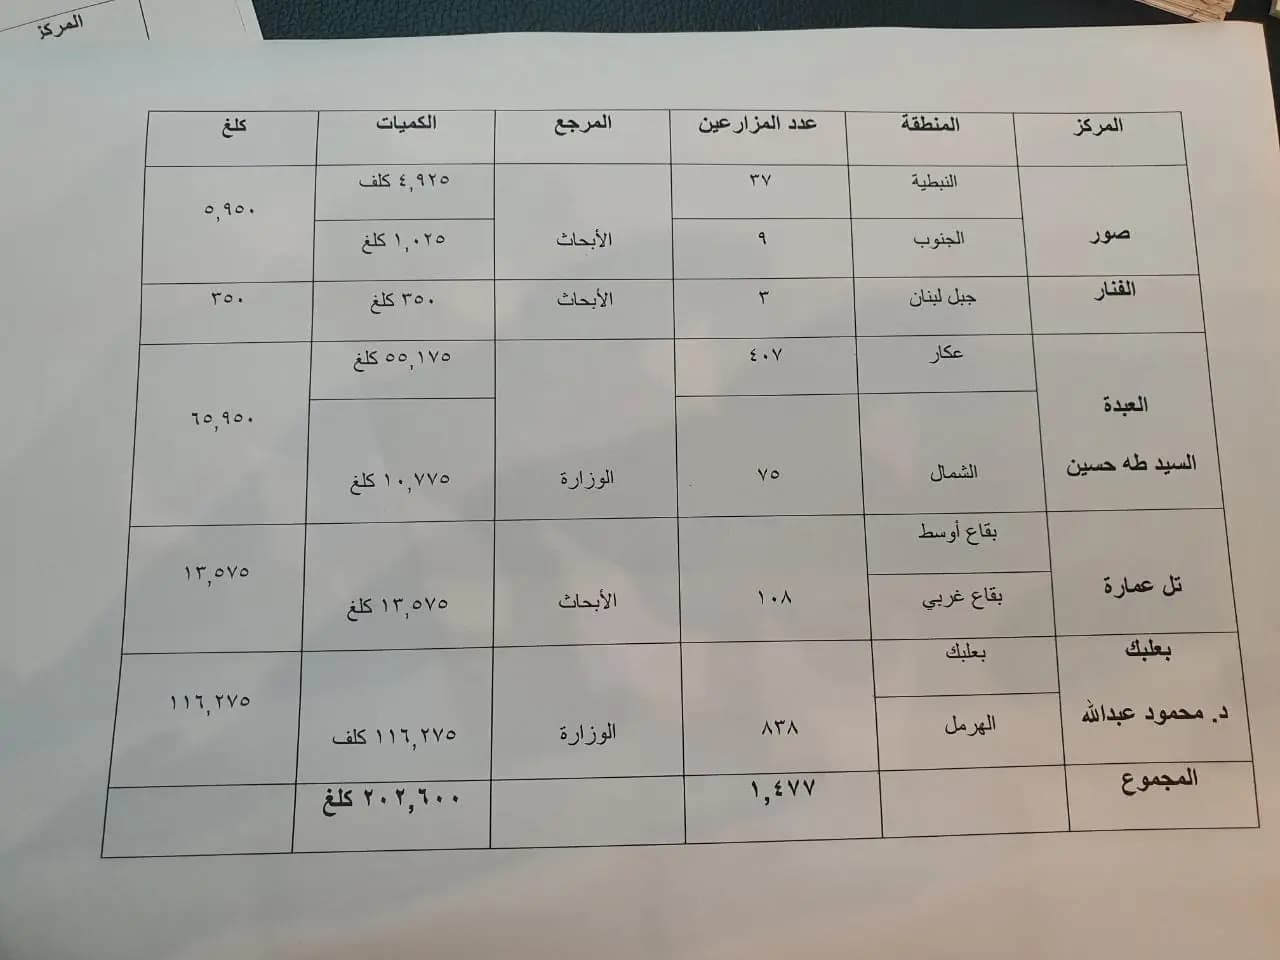 المركز
المركز	المنطقة	عدد المزارعين	المرجع	الكميات	كلغ
صور	النبطية	٣٧	الأبحاث	٤,٩٢٥ كلف	٥,٩٥٠
الجنوب	٩	١,٠٢٥ كلغ
الفنار	جبل لبنان	٣	الأبحاث	٣٥٠ كلغ	٣٥٠
العبدة	عكار	٤٠٧	٥٥,١٧٥ كلغ	٦٥,٩٥٠
السيد طه حسين	الشمال	٧٥	الوزارة	١٠,٧٧٥ كلغ
تل عمارة	بقاع أوسط	١٠٨	الأبحاث	١٣,٥٧٥ كلغ	١٣,٥٧٥
بقاع غربي
بعلبك	بعلبك	١١٦,٢٧٥
د. محمود عبدالله	الهرمل	٨٣٨	الوزارة	١١٦,٢٧٥ كلف
المجموع	١,٤٧٧	٢٠٢,٦٠٠ كلغ